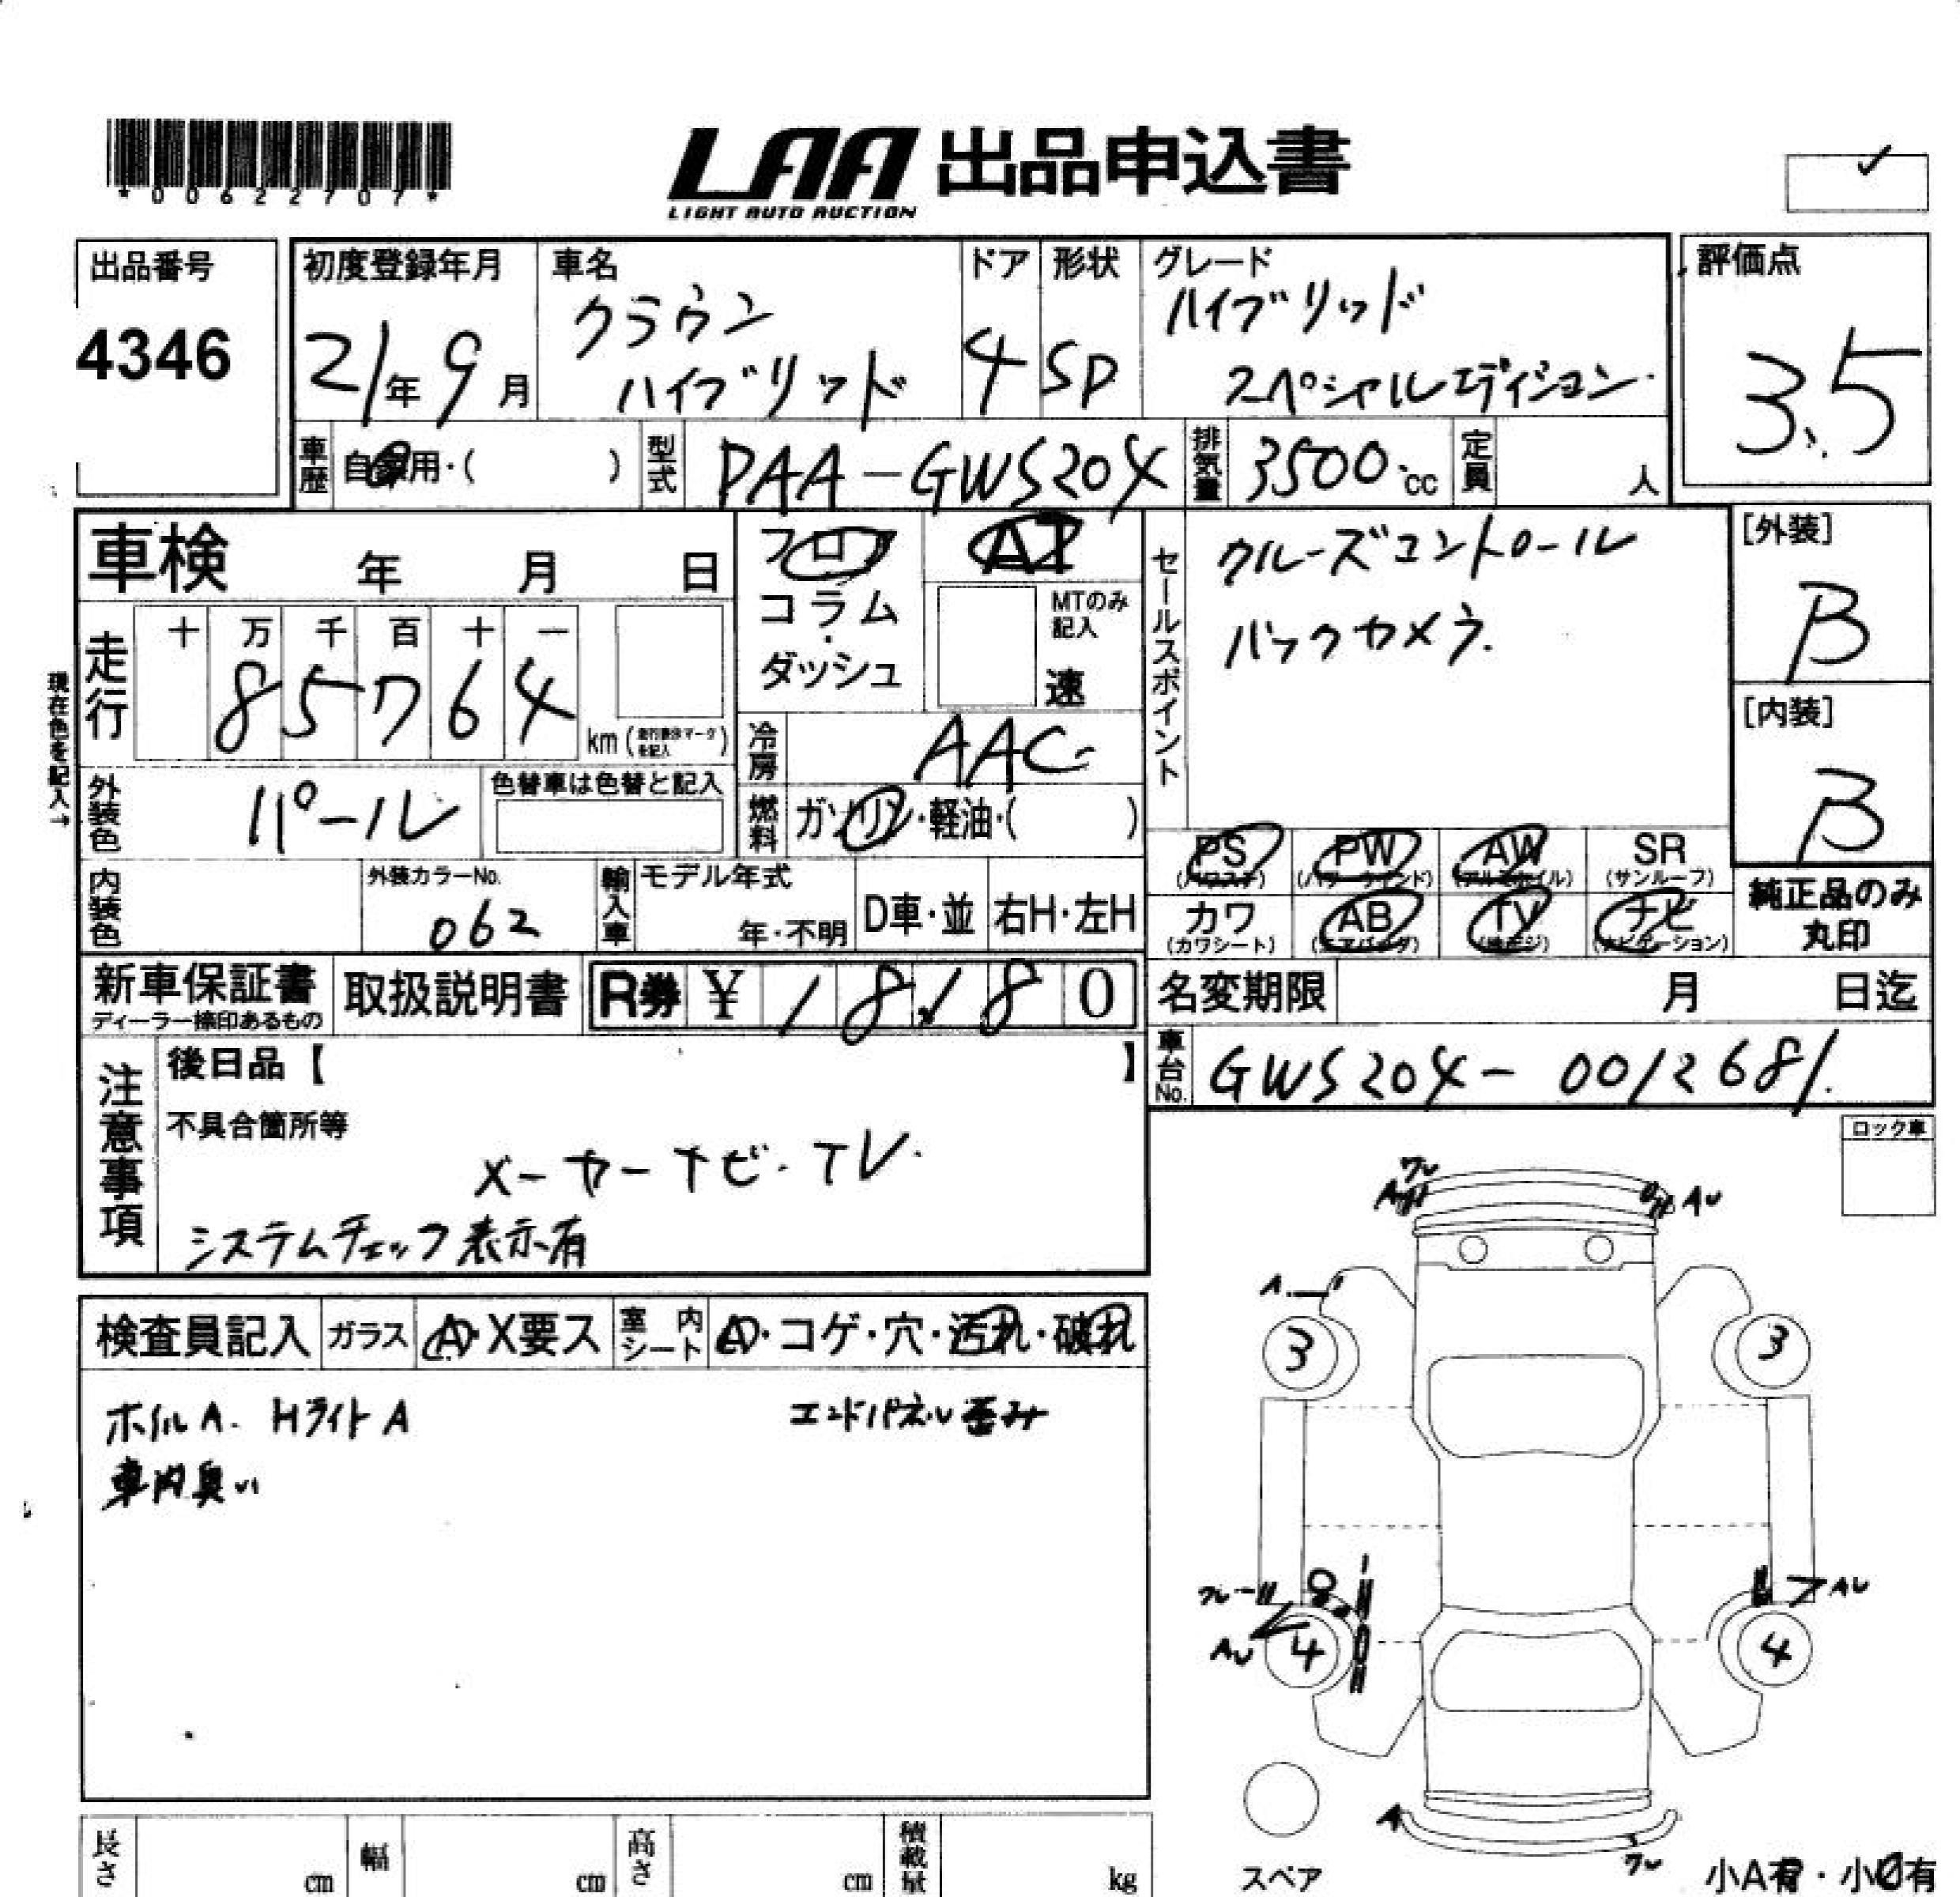 *00622707*
LAA 出品申込書
LIGHT AUTO AUCTION
出品番号
4346
初度登録年月
21年 9月
車名
クラウン
ハイブリッド
ドア
4
形状
SD
グレード
ハイブリッド
スペシャルエディション
評価点
3.5
車歴
自家用・( )
型式
DAA-GWS204
排気量
3500 cc
定員
人
車検 年 月 日
フロア
コラム
ダッシュ
AT
MTのみ
記入
速
セールスポイント
クルーズコントロール
バックカメラ
[外装]
B
[内装]
B
現在色を記入→
走行
十 万 千 百 十 一
8 5 7 6 4
km
冷房
AAC
燃料
ガソリン・軽油・( )
外装色
パール
色替車は色替と記入
内装色
外装カラーNo.
062
輸入車
モデル年式
年・不明
D車・並
右H・左H
PS
(パワステ)
PW
(パワーウインド)
AW
(アルミホイル)
SR
(サンルーフ)
カワ
(カワシート)
AB
(エアバッグ)
TV
(地デジ)
ナビ
(ナビゲーション)
純正品のみ
丸印
新車保証書
ディーラー捺印あるもの
取扱説明書
R券 ¥ 18180
名変期限 月 日迄
車台No.
GWS204-0012681
注意事項
後日品【 】
不具合箇所等
メーカーナビ・TV
システムチェック表示有
ロック車
検査員記入
ガラス
A・X要ス
室内シート
A・コゲ・穴・汚れ・破れ
ホイルA. HライトA
エンドパネル歪み
車内臭い
ワレ
A
AU
A
3
3
ワレ
AU
AU
4
4
A
ワレ
スペア
小A有・小U有
長さ
cm
幅
cm
高さ
cm
積載量
kg